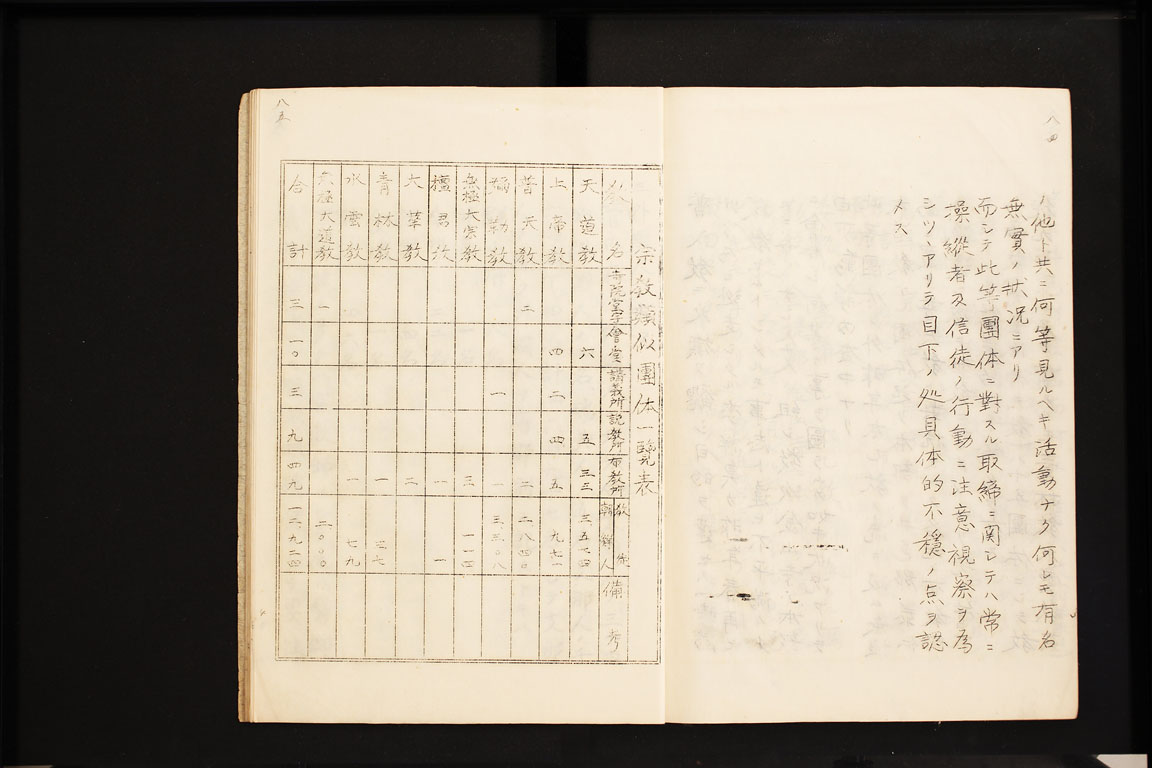 八四
ノ他ト共ニ何等見ルヘキ活動ナク何レモ有名
無實ノ狀況ニアリ
而シテ此等團体ニ對スル取締ニ関シテハ常ニ
操縱者及信徒ノ行動ニ注意視察ヲ為
シツヽアリテ目下ノ処具体的不穩ノ点ヲ認
メス
八五
宗教類似團体一覽表
教名 寺院堂宇 會堂 講義所 説教所 布教所 教徒 朝鮮人 備考
天道教 六 五 三三 三五七四
上帝教 四 二 四 五 九七一
普天教 二 二 二八四〇
彌勒教 一 一 三三〇八
無極大宗教 三 一一四
檀君教 一 一
大華教 二
青林教 一 三七
水雲教 一 七九
無極大道教 一 二〇〇〇
合計 三 一〇 三 九 四九 一二、九二四